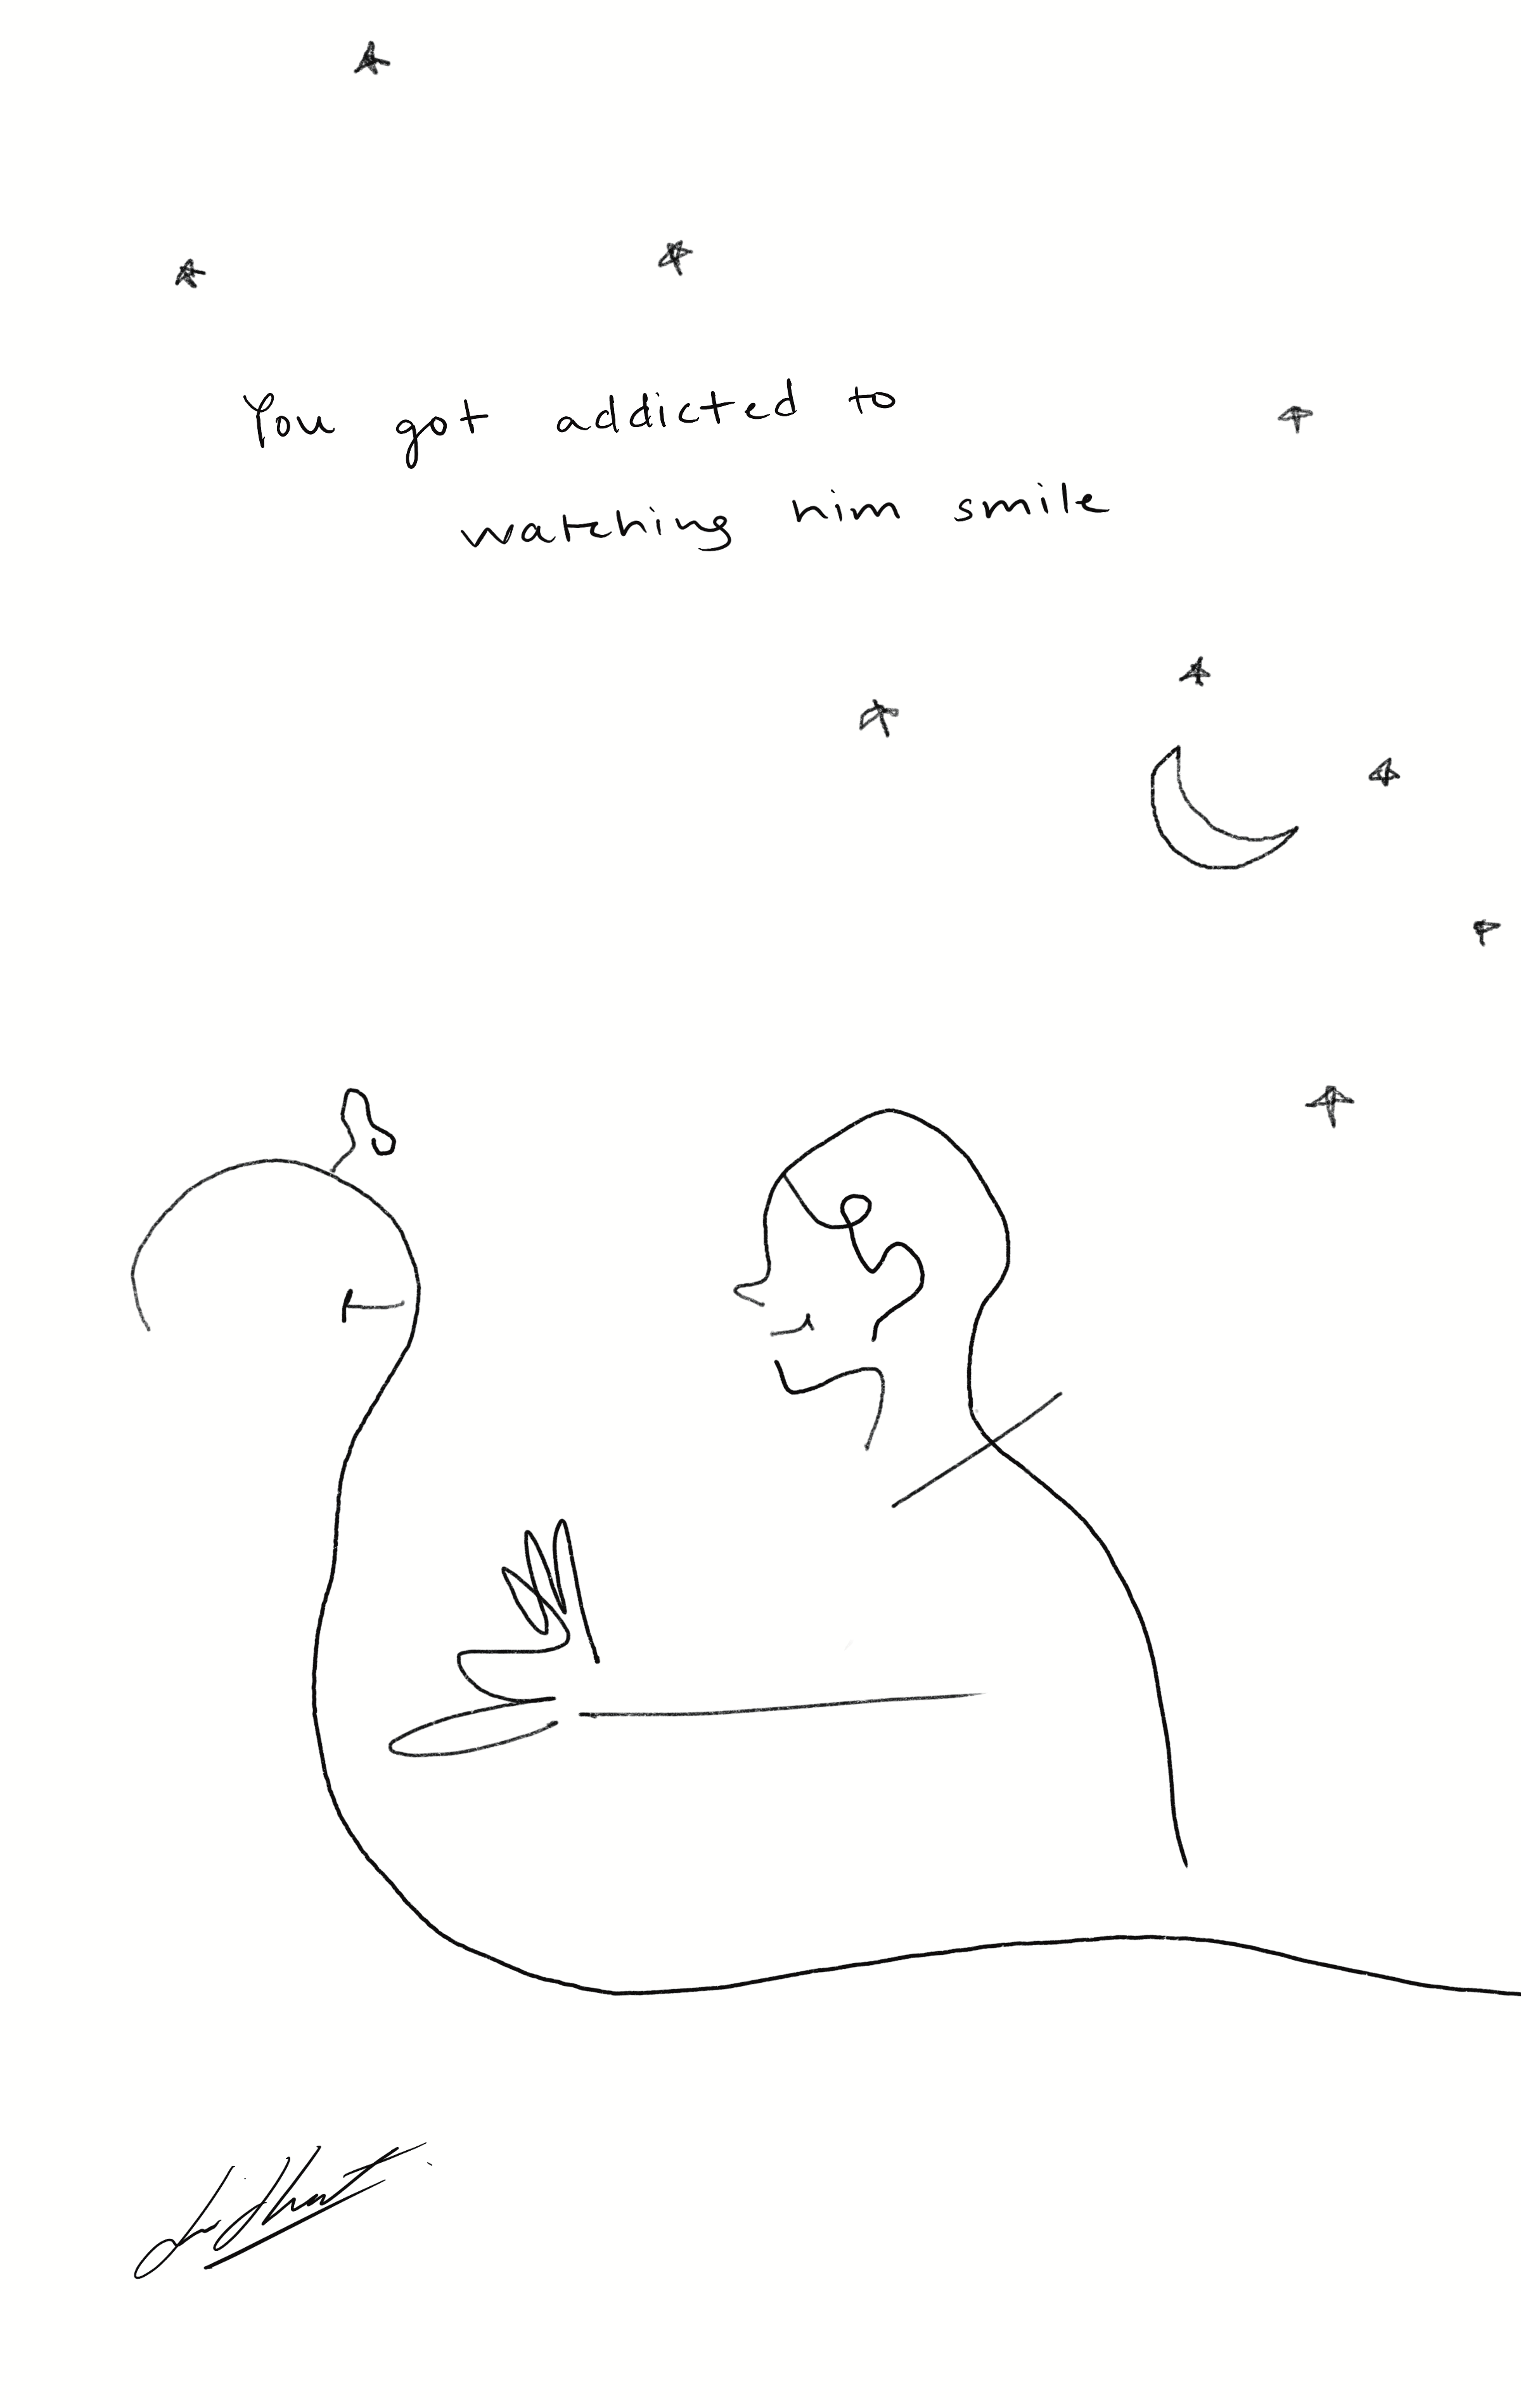 You got addicted to
watching him smile